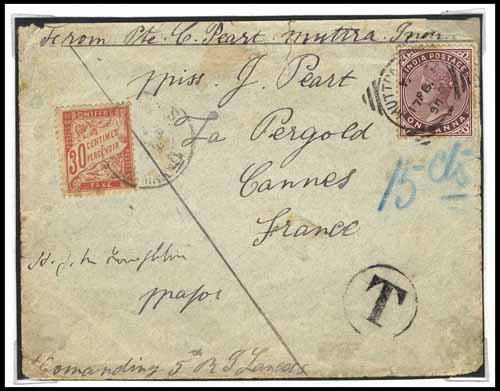 From Pte. C. Peart. Muttra. India
INDIA POSTAGE
ONE ANNA
MUTTRA
Miss. J. Peart
La Pergold
Cannes
France
CHIFFRE
30 CENTIMES
A PERCEVOIR
TAXE
15 cts
T
Major
Comanding 5th R I Lancers